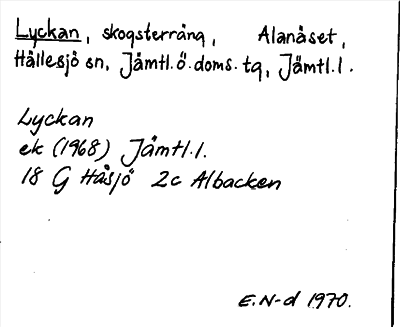 Lyckan, skogsterräng, Alanäset,
Hällesjö sn, Jämtl. ö. doms. tg, Jämtl. l.
Lyckan
ek (1968) Jämtl. l.
18 G Håsjö 2c Albacken
E. N-d 1970.